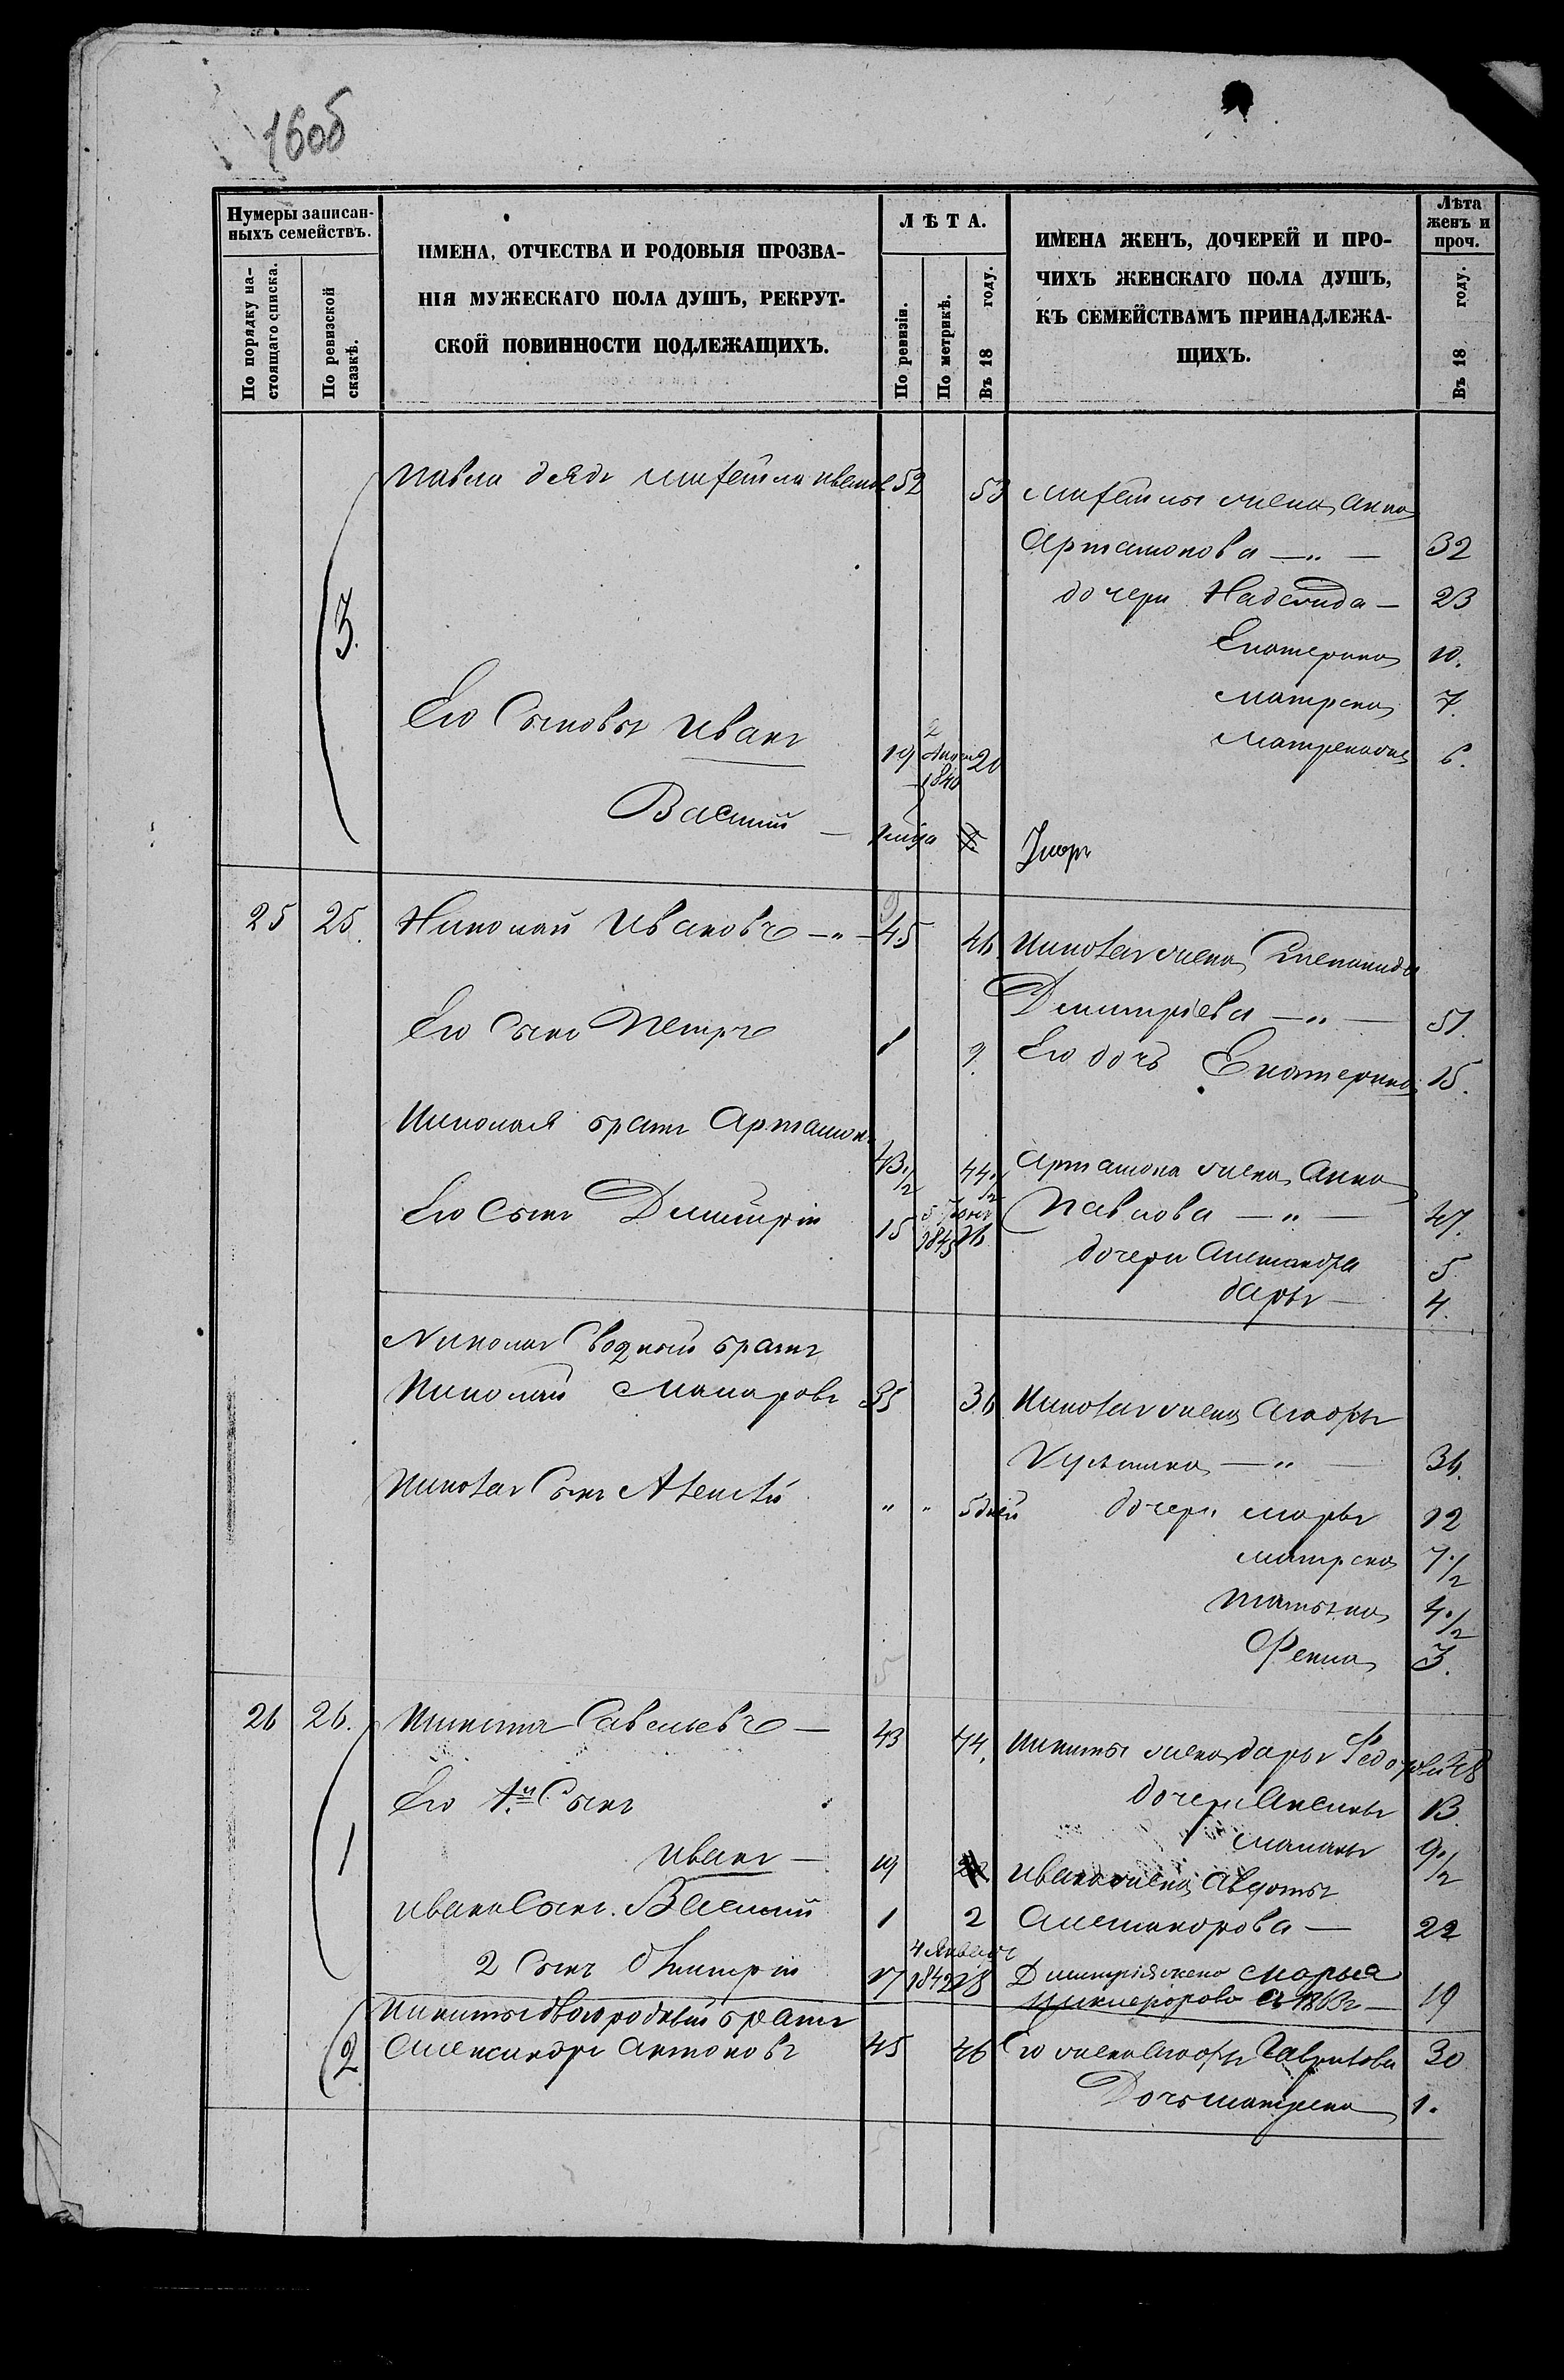 160б
Нумеры записан-
ныхъ семействъ.
По порядку на-
стоящаго списка.
По ревизской
сказкѣ.
ИМЕНА, ОТЧЕСТВА И РОДОВЫЯ ПРОЗВА-
НІЯ МУЖЕСКАГО ПОЛА ДУШЪ, РЕКРУТ-
СКОЙ ПОВИННОСТИ ПОДЛЕЖАЩИХЪ.
ЛѢТА.
По ревизіи.
По метрикѣ.
Въ 18 году.
ИМЕНА ЖЕНЪ, ДОЧЕРЕЙ И ПРО-
ЧИХЪ ЖЕНСКАГО ПОЛА ДУШЪ,
КЪ СЕМЕЙСТВАМЪ ПРИНАДЛЕЖА-
ЩИХЪ.
Лѣта
женъ и
проч.
Въ 18 году.
Павла дядя Михайла Иванов 52 53 Михайлы жена Анна
Артамонова —„— 32
дочери Надежда — 23
3. Екатерина 10.
Матрена 7.
Его Сыновья Иванъ 19 2 1840 20 6.
Василий —
25 25. Николай Ивановъ —„— 45 46. Николая жена Степанида
Дмитріева —„— 51.
Его сынъ Петръ 1 2. Его дочь Екатерина 15.
Николая братъ Артамонъ 43 1/2 44 1/2 Артамона жена Анна
Его сынъ Дмитрій 15 5 1845 16 Павлова —„— 47.
дочери Александра 5
Дарья — 4.
Николая Сводный братъ
Николай Макаровъ 35 36 Николая жена
—„— 36.
Николая Сынъ Алексѣй „ „ 5 дней дочери Марья 12
Матрена 7 1/2
Татьяна 4 1/2
Фекла 3.
26 26. Никита Савельевъ — 43 44. Никиты жена Дарья Федорова 48
Его 1й Сынъ дочери Аксинья 13.
1 Маланья 9 1/2
Иванъ — 19 Ивана жена Авдотья
Ивана Сынъ Василий 1 2 Александрова — 22
2 Сынъ Дмитрій 17 4 Января 1842 18 Дмитрія жена Марья
Никифорова 1863г — 19
Никиты двоюродный братъ
2. Александръ Антоновъ 45 46 Его жена Гаврилова 30
Дочь Матрена 1.